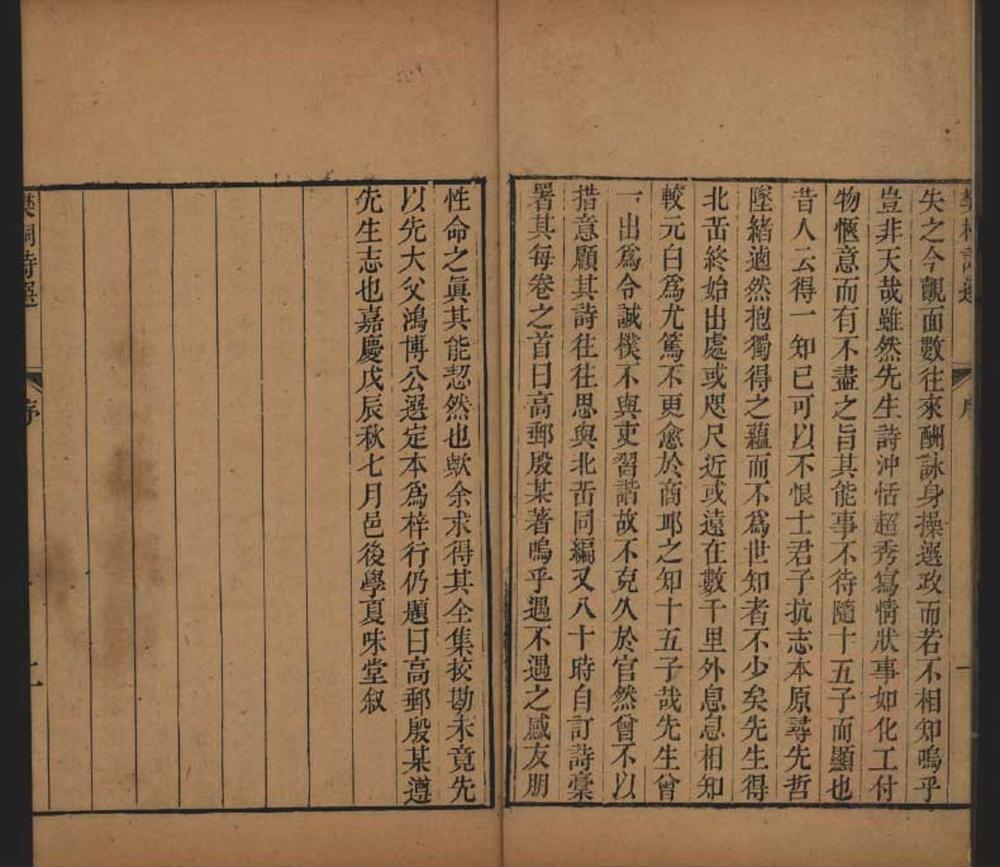 失之今覿面數往來酬詠身操選政而若不相知嗚乎
豈非天哉雖然先生詩沖恬超秀寫情狀事如化工付
物愜意而有不盡之旨其能事不待隨十五子而顯也
昔人云得一知已可以不恨士君子抗志本原尋先哲
墜緒逌然抱獨得之蘊而不爲世知者不少矣先生得
北嵒終始出處或咫尺近或遠在數千里外息息相知
較元白爲尤篤不更愈於商邱之知十五子哉先生曾
一出爲令誠樸不與吏習諧故不克久於官然曾不以
措意願其詩往往思與北嵒同編又八十時自訂詩稾
署其每卷之首曰高郵殷某著嗚乎遇不遇之感友朋
序
一
性命之眞其能恝然也歟余求得其全集挍勘未竟先
以先大父鴻博公選定本爲梓行仍題曰高郵殷某遵
先生志也嘉慶戊辰秋七月邑後學夏味堂叙
詩選
序
二